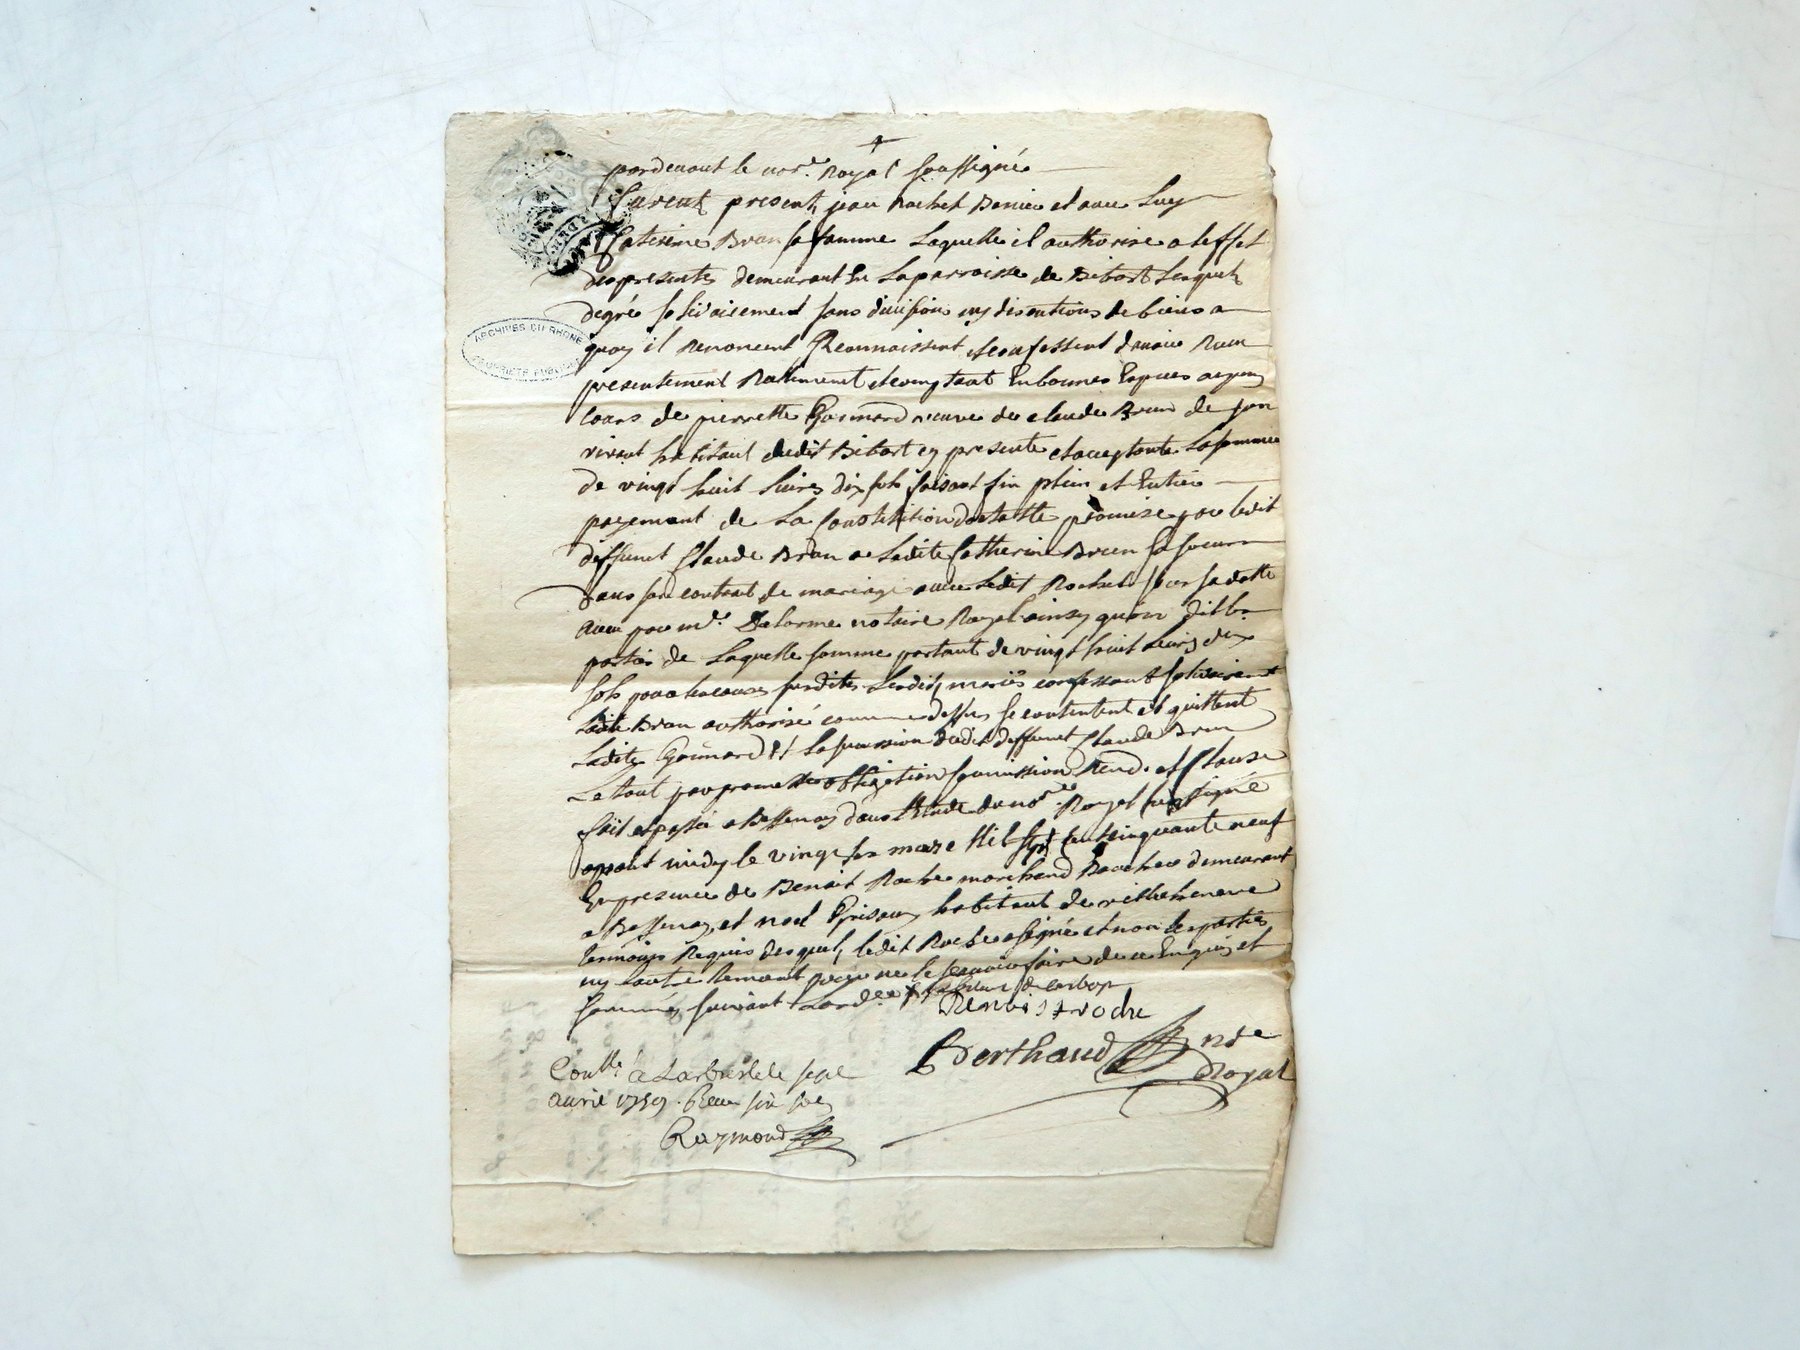 pardevant le nore. Royal soussigné
furent presents jean Rochet Benier et avec Luy
Caterine Brun sa famme Laquelle il authorise a leffet
des presentes demeurant En La parroisse de Bibost Lesquels
degré solidairement sans division ny discutions de biens a
quoy il renoncent Reconnaissent et confessent d'avoir Receu
presentement Reellement et comptant En bonnes Espuces ayant
cours de pierrette Goimard veuve de claude Brun de son
vivant habitant dudit Bibost cy presente et acceptante La somme
de vingt huit livres dix sols faisant fin plein et Entier
payement de La Constitution dotalle promise par ledit
deffunct Claude Brun a Ladite Catherine Brun sa soeur
dans son contrat de mariage avec Ledit Rochet pour sa dotte
Receu par me. Delorme notaire Royal ainsy qu'on dit les
parties de Laquelle somme portant de vingt huit livres dix
sols pour les causes susdites Lesdits mariés confessants solidairement
Ladite Brun authorisé comme dessus se contentent et quittent
Ladite Goimard et La succession dudit deffunct Claude Brun
Le tout par promesse obligation soumission Rend. et Clause
fait et passé a Bessenay dans l'Etude du nore. Royal soussigné
avant midy le vingt six mars Mil sept cent cinquante neuf
En presence de Benoit Roche marchand Boucher demeurant
a Bessenay et noel Grisoud habitant de villecheneve
temoins Requis desquels ledit Roche a signé et non les parties
ny l'autre temoint pour ne le scavoir faire de ce Enquis et
sommés suivant Lorde.
Benoist roche
Berthaud nre
Royal
Conllé a Larbresle le sept
avril 1759. Reçu six sols
Raymond
ARCHIVES DU RHONE
PROPRIETE PUBLIQUE